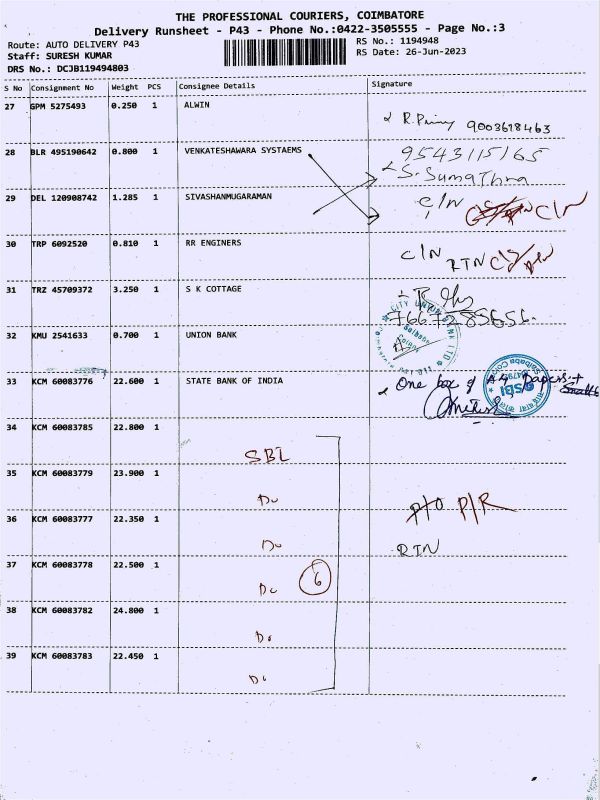 THE PROFESSIONAL COURIERS, COIMBATORE
Delivery Runsheet - P43 - Phone No.:0422-3505555 - Page No.:3
Route: AUTO DELIVERY P43
RS No.: 1194948
Staff: SURESH KUMAR
RS Date: 26-Jun-2023
DRS No.: DCJB119494803
S No Consignment No Weight PCS Consignee Details Signature
27 GPM 5275493 0.250 1 ALWIN
9003618463
28 BLR 495190642 0.800 1 VENKATESHAWARA SYSTAEMS
9543115165
S. Sumathra
29 DEL 120908742 1.285 1 SIVASHANMUGARAMAN
C/N C/N
30 TRP 6092520 0.810 1 RR ENGINERS
C/N RTN
31 TRZ 45709372 3.250 1 S K COTTAGE
7667285656
32 KMU 2541633 0.700 1 UNION BANK
CITY UNION BANK LTD
33 KCM 60083776 22.600 1 STATE BANK OF INDIA
One box of A4 papers +
SBI
34 KCM 60083785 22.800 1
SBI
35 KCM 60083779 23.900 1
Do
P/O P/R
36 KCM 60083777 22.350 1
Do
RTN
37 KCM 60083778 22.500 1
Do 6
38 KCM 60083782 24.800 1
Do
39 KCM 60083783 22.450 1
Do